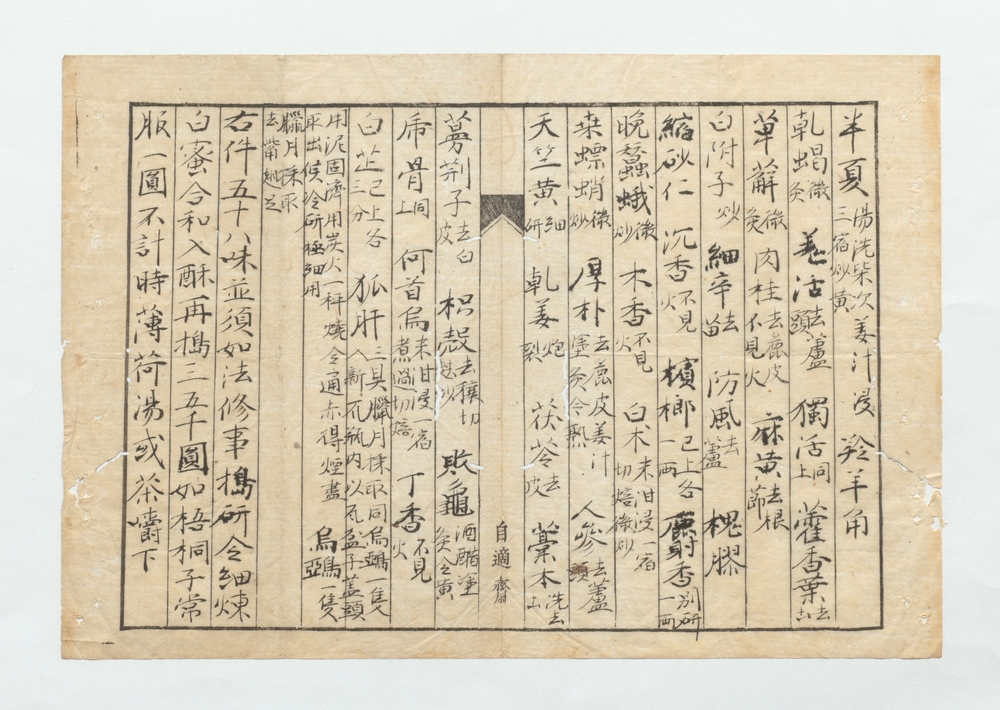 半夏湯洗柴次姜汁浸三宿炒黃 羚羊角
乾蝎微炙 羗活去蘆頭 獨活同上 藿香葉去土
萆薢微炙 肉桂去麁皮不見火 麻黃去根節
白附子炒 細辛去苗 防風去蘆 槐膠
縮砂仁 沉香不見火 檳榔已上各一兩 麝香別研一兩
晚蠶蛾微炒 木香不見火 白朮米泔浸一宿切焙微炒
桒螵蛸微炒 厚朴去麁皮姜汁塗炙令熟 人參去蘆頭
天竺黃細研 乾姜炮裂 茯苓去皮 藁本洗去土
自適齋
蔓荊子去白皮 枳殼去穰切麸炒 敗龜酒醋塗炙令黃
虎骨同上 何首烏米泔浸煮過切焙宿 丁香不見火
白芷已上各三分 狐肝三具臘月採取同烏鴉一隻入新瓦瓶內以瓦盆子蓋頭 烏鴉一隻
用泥固濟用炭火一秤燒令通赤得煙盡取出候冷研極細用
臘月採取去觜趐足
右件五十八味並須如法修事搗研令細煉
白蜜合和入酥再搗三五千圓如梧桐子常
服一圓不計時薄荷湯或茶嚼下